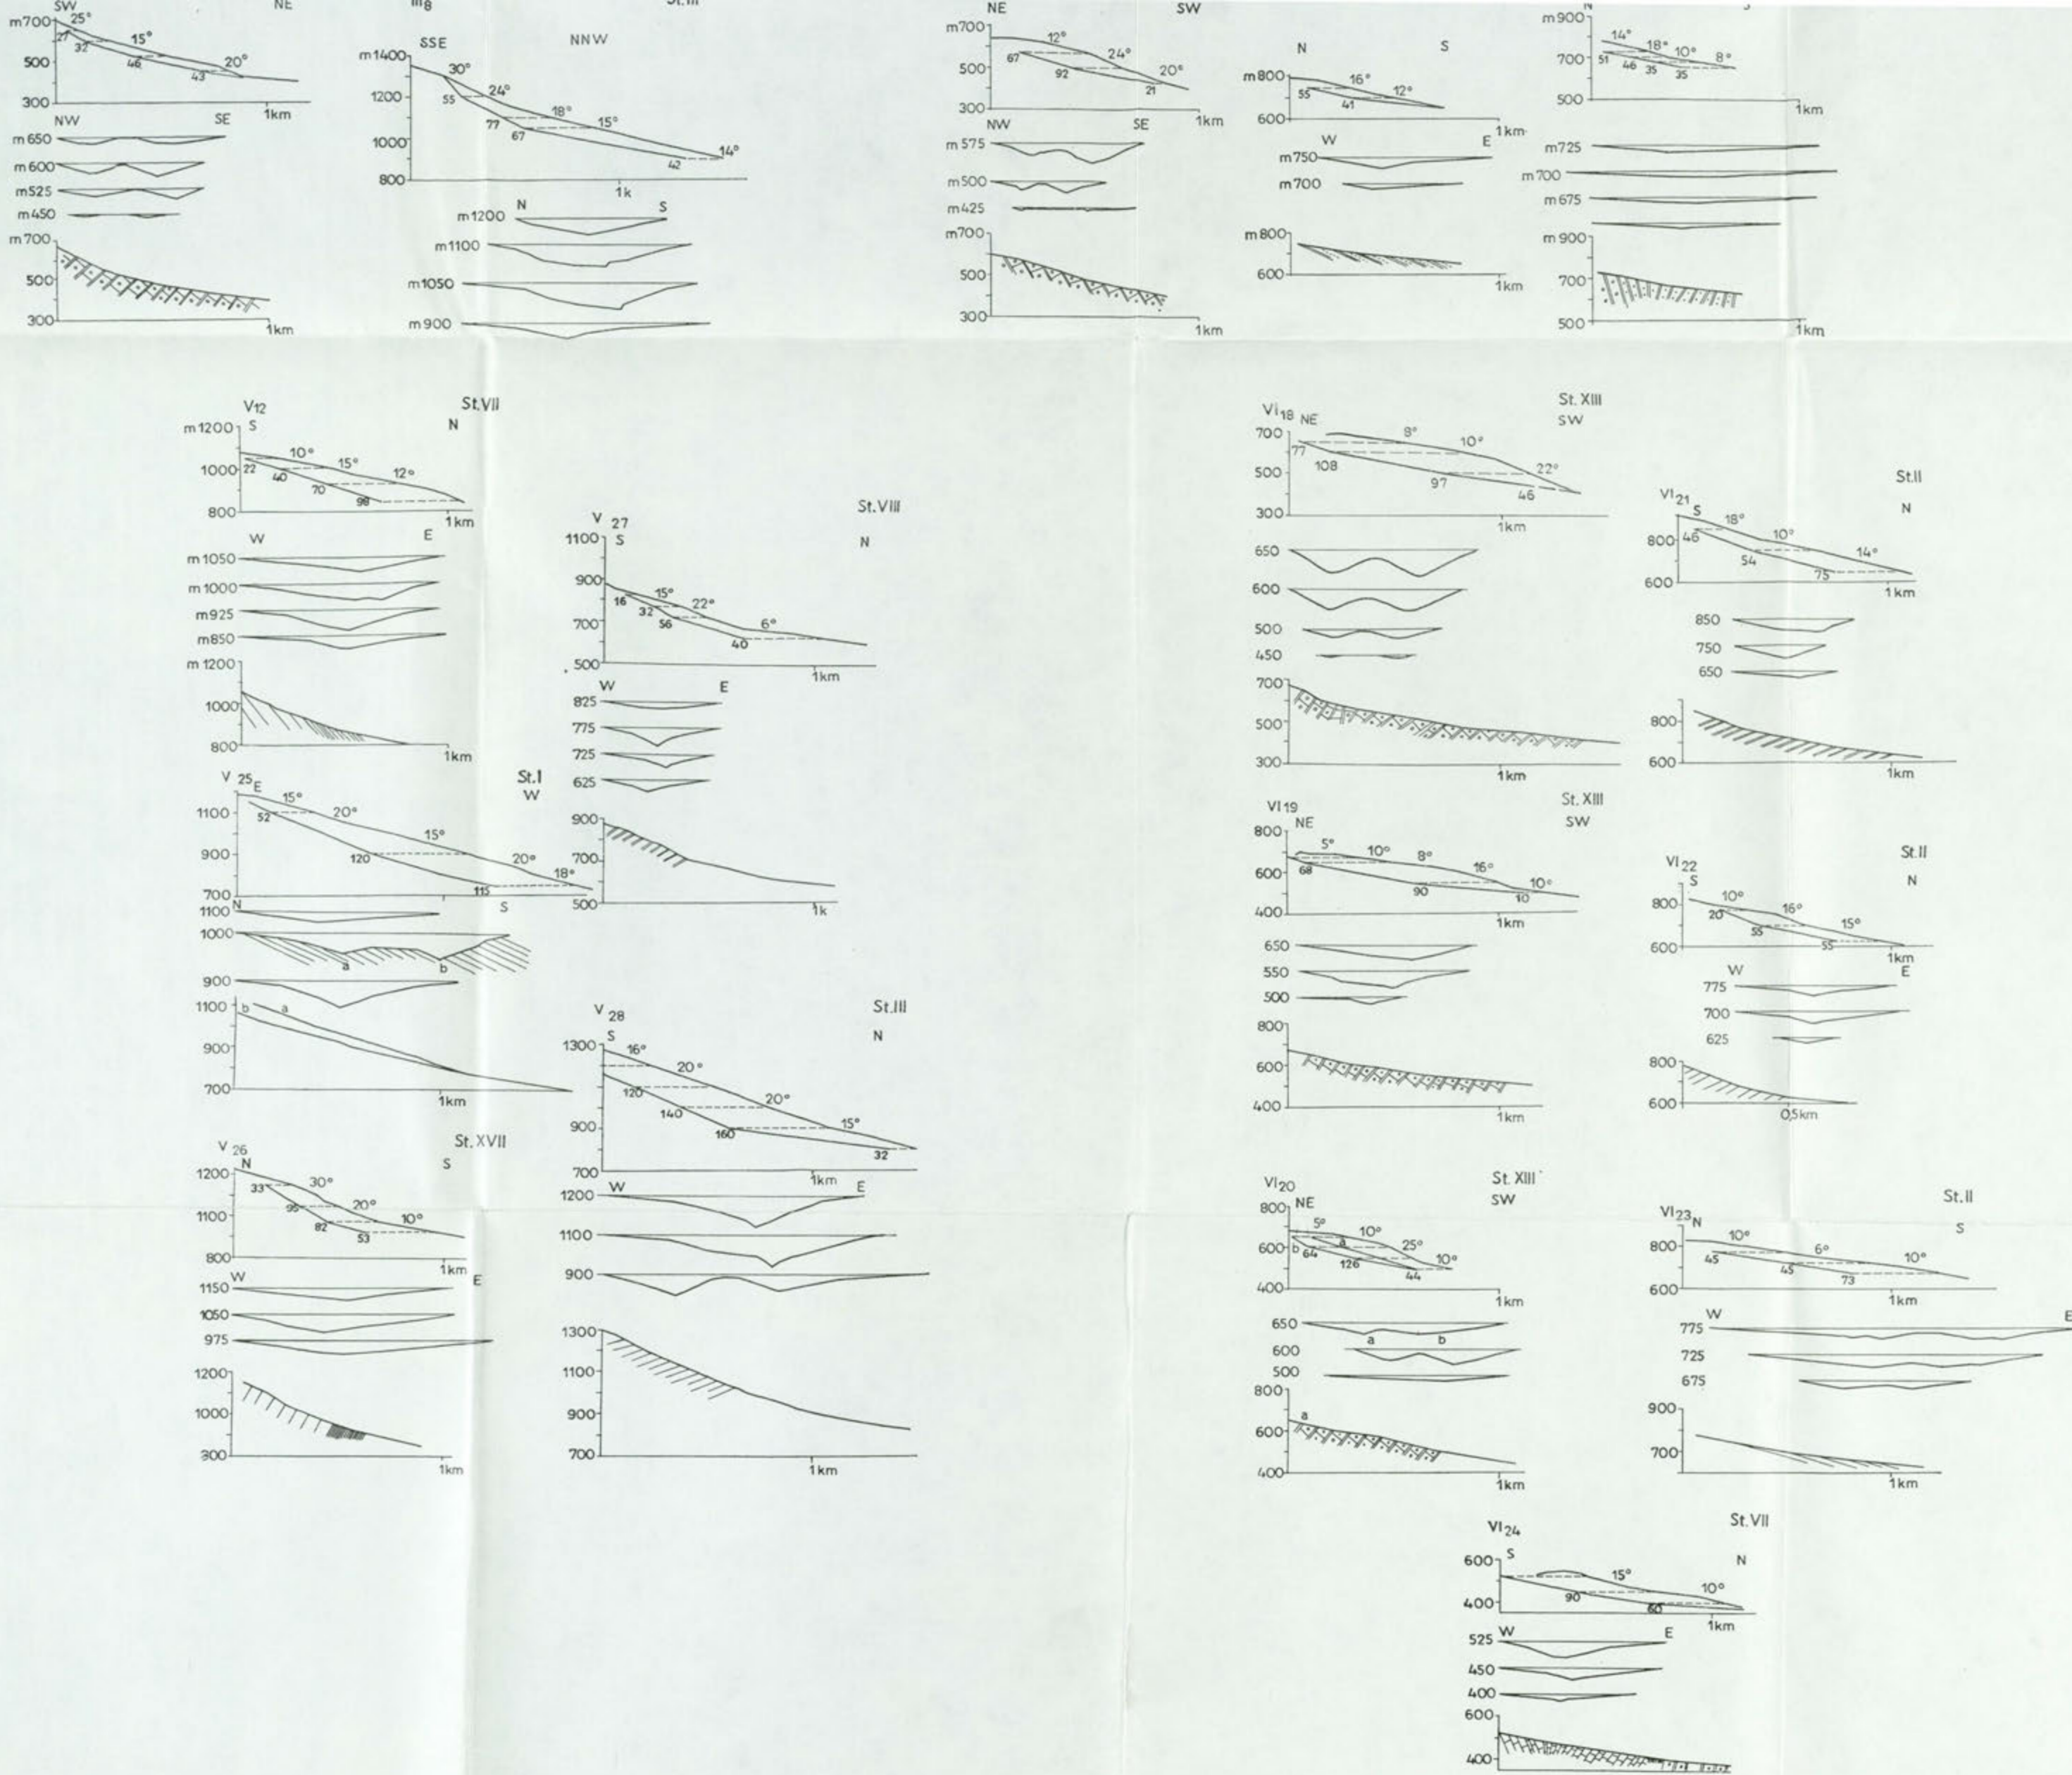 SW NE
m700 25°
27 32 15°
500 46 43 20°
300 1km
NW SE
m650
m600
m525
m450
m700
500
300 1km
m8 St.III
SSE NNW
m1400 30°
1200 55 24°
77 18°
1000 67 15°
42 14°
800 1k
N S
m1200
m1100
m1050
m900
NE SW
m700 12°
67 24°
500 92 20°
21
300 1km
NW SE
m575
m500
m425
m700
500
300 1km
N S
m800 16°
55 41 12°
600 1km
W E
m750
m700
m800
600 1km
N
m900
14° 18° 10° 8°
700 51 46 35 35
500 1km
m725
m700
m675
m900
700
500 1km
V12 St.VII
m1200 S N
10° 15° 12°
1000 22 40 70 98
800 1km
W E
m1050
m1000
m925
m850
m1200
1000
800 1km
V 25 E St.I
W
1100 15° 20°
52 15°
900 120 20°
18°
700 115
N S
1100
1000
a b
900
1100 b a
900
700 1km
V 26 St.XVII
N S
1200 33 30°
95 20°
1100 82 10°
53
800 1km
W E
1150
1050
975
1200
1000
300 1km
V 27 St.VIII
1100 S N
900
16 15° 22°
32
700 56 6°
40
500 1km
W E
825
775
725
625
900
700
500 1k
V 28 St.III
1300 S N
16°
20°
1100 120 20°
140
900 160 15°
32
700 1km
W E
1200
1100
900
1300
1100
900
700 1km
VI18 NE St. XIII
SW
700 8° 10°
77 108
500 97 22°
46
300 1km
650
600
500
450
700
500
300 1km
VI19 St. XIII
NE SW
800
5° 10° 8°
600 68 16°
90 10 10°
400 1km
650
550
500
800
600
400 1km
VI20 St. XIII
NE SW
800
5° 10°
600 b 64 a 25°
126 10°
44
400 1km
650
a b
600
500
800
a
600
400 1km
VI21 St.II
S N
18° 10°
800 46 14°
54 75
600 1km
850
750
650
800
600 1km
VI22 St.II
S N
10° 16°
800 20 15°
55 55
600 1km
W E
775
700
625
800
600 0,5km
VI23 N St.II
S
10° 6° 10°
800 45 45 73
600 1km
W E
775
725
675
900
700
1km
VI24 St.VII
600 S N
15° 10°
400 90 60
1km
525 W E
450
400
600
400